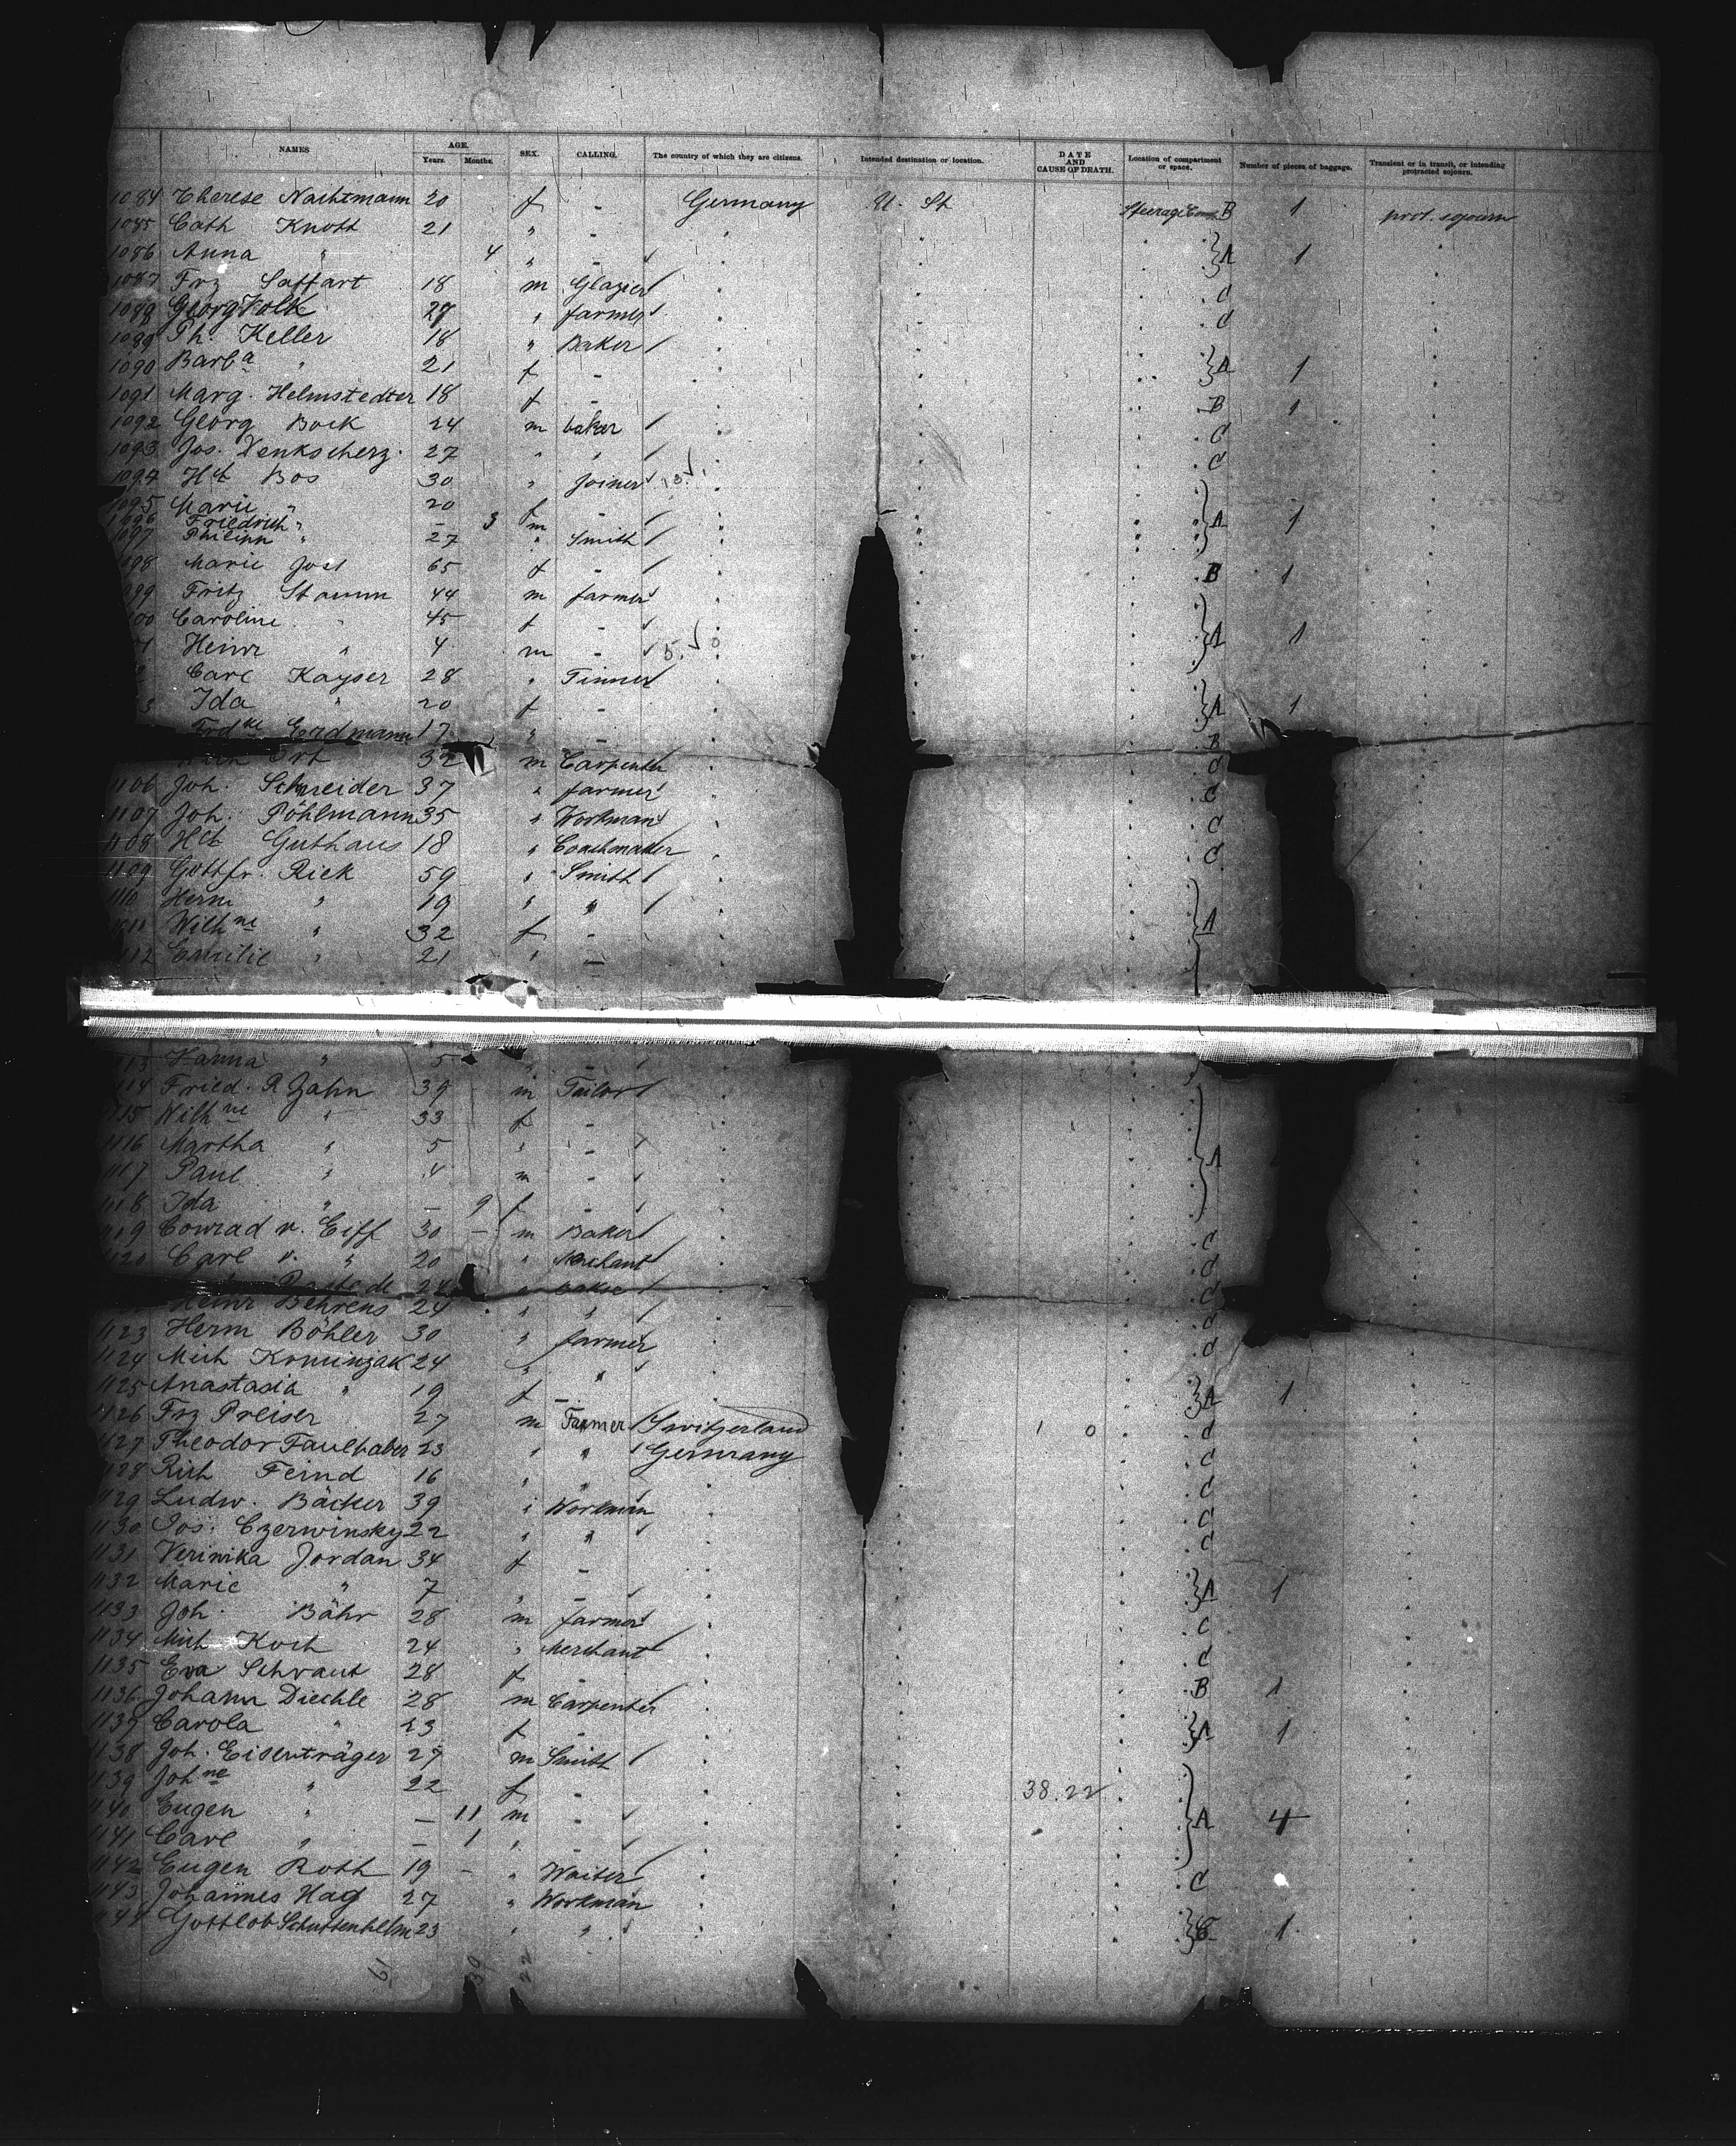 NAMES AGE. Years. Months. SEX. CALLING. The country of which they are citizens. Intended destination or location. DATE AND CAUSE OF DEATH. Location of compartment or space. Number of pieces of baggage. Transient or in transit, or intending protracted sojourn.
1084 Therese Nachtmann 20 f - Germany U. St Steerage B 1 prot. sojourn
1085 Cath Knott 21 " -
1086 Anna " 4 " - A 1
1087 Frz Saffart 18 m Glazier C
1088 Georg Volk " farmer C
1089 Ph. Keller 18 " Baker
1090 Barba " 21 f - A 1
1091 Marg. Helmstedter 18 f - B 1
1092 Georg Bock 24 m baker C
1093 Jos. Denkscherz 27 " " C
1094 Hch Bos 30 " Joiner
1095 Marie " 20 f -
1096 Friedrich " - 3 m - A 1
1097 Philipp " 27 " Smith
098 Marie Jost 65 f - B 1
099 Fritz Stamm 44 m farmer
00 Caroline " 45 f -
1 Heinr " 4 m - A 1
Carl Kayser 28 " Tinner
3 Ida " 20 f - A 1
Erdmann 17 " - B
Ort 32 m Carpenter C
1106 Joh. Schneider 37 " farmer C
1107 Joh. Pöhlmann 35 " Workman C
1108 Hch Guthaus 18 " Coachmaker C
1109 Gottfr. Rick 59 " Smith
1110 Herm " 19 " "
1111 Wilhne " 32 f - A
1112 Emilie " 21 " -
1113 Hanna " 5 " -
1114 Fried. R Zahn 39 m Tailor
1115 Wilhne " 33 f -
1116 Martha " 5 " -
1117 Paul " 4 m - A
1118 Ida " - 9 f -
1119 Conrad v. Eiff 30 - m Baker C
1120 Carl v. " 20 " Merchant C
24 " baker C
Heinr Behrens 24 " " C
1123 Herm Böhler 30 " farmer C
1124 Mich Kominzak 24 " "
1125 Anastasia " 19 f - A 1
1126 Frz Preiser 27 m Farmer Switzerland C
1127 Theodor Faulhaber 23 " " Germany C
1128 Rich Feind 16 " " C
1129 Ludw. Bäcker 39 " Workman C
1130 Jos. Czerwinsky 22 " " C
1131 Verinika Jordan 34 f -
1132 Marie " 7 " - A 1
1133 Joh. Bähr 28 m farmer C
1134 Mich Koch 24 " Merchant C
1135 Eva Schraut 28 f - B 1
1136 Johann Diechle 28 m Carpenter
1137 Carola " 23 f - A 1
1138 Joh. Eisenträger 27 m Smith
1139 Johne " 22 f - 38.22
1140 Eugen " - 11 m - A 4
1141 Carl " - 1 " -
1142 Eugen Roth 19 - " Waiter C
1143 Johannes Hag 27 " Workman
1144 Gottlob Schuttenhelm 23 " " C 1